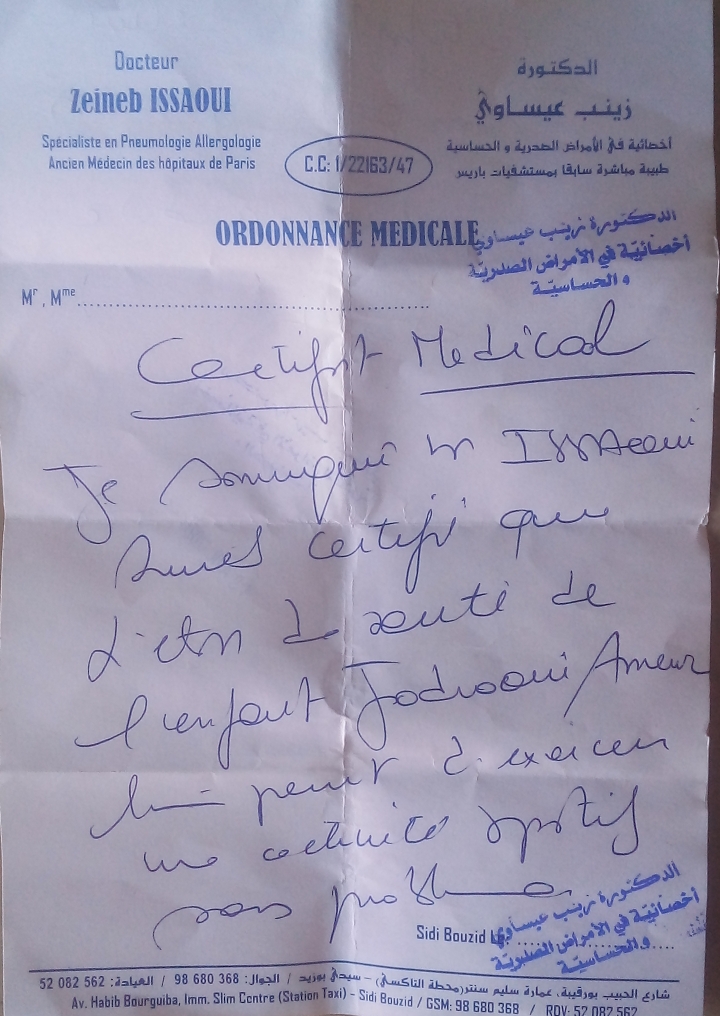 Docteur
Zeineb ISSAOUI
Spécialiste en Pneumologie Allergologie
Ancien Médecin des hôpitaux de Paris
C.C: 1/22163/47
الدكتورة
زينب عيساوي
أخصائية في الأمراض الصدرية و الحساسية
طبيبة مباشرة سابقا بمستشفيات باريس
ORDONNANCE MEDICALE
الدكتورة زينب عيساوي
أخصائيّة في الأمراض الصدريّة
و الحساسيّة
Mr , Mme
Certifit Medical
Je ISSAOUI
certifi que
L'etat de santé de
l'enfant Jadraoui Ameur
lui permet d'exercer
une activité sportif
sans problème
Sidi Bouzid
الدكتورة زينب عيساوي
أخصائيّة في الأمراض الصدريّة
و الحساسيّة
شارع الحبيب بورقيبة، عمارة سليم سنتر(محطة التاكسي) – سيدي بوزيد / الجوال: 368 680 98 / العيادة: 562 082 52
Av. Habib Bourguiba, Imm. Slim Centre (Station Taxi) - Sidi Bouzid / GSM: 98 680 368 / RDV: 52 082 562